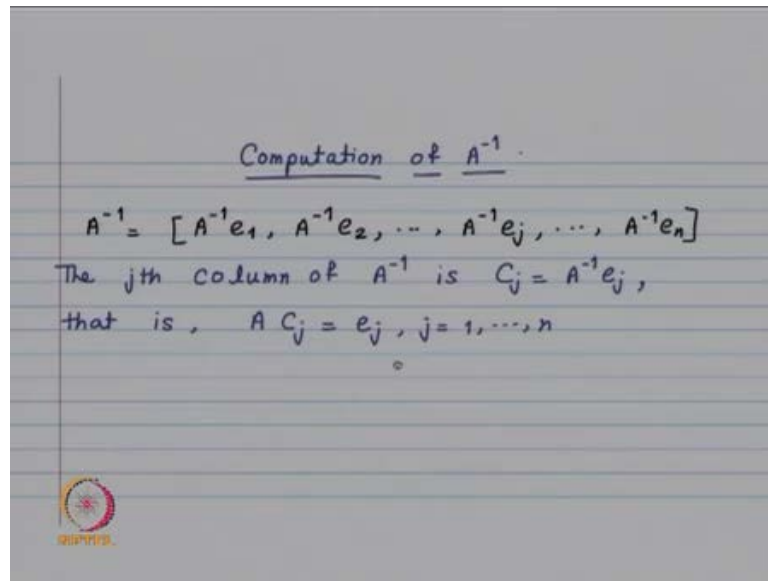 Computation of A⁻¹.
A⁻¹ = [A⁻¹e₁, A⁻¹e₂, ..., A⁻¹eⱼ, ..., A⁻¹eₙ]
The jth column of A⁻¹ is Cⱼ = A⁻¹eⱼ,
that is, A Cⱼ = eⱼ, j = 1, ..., n